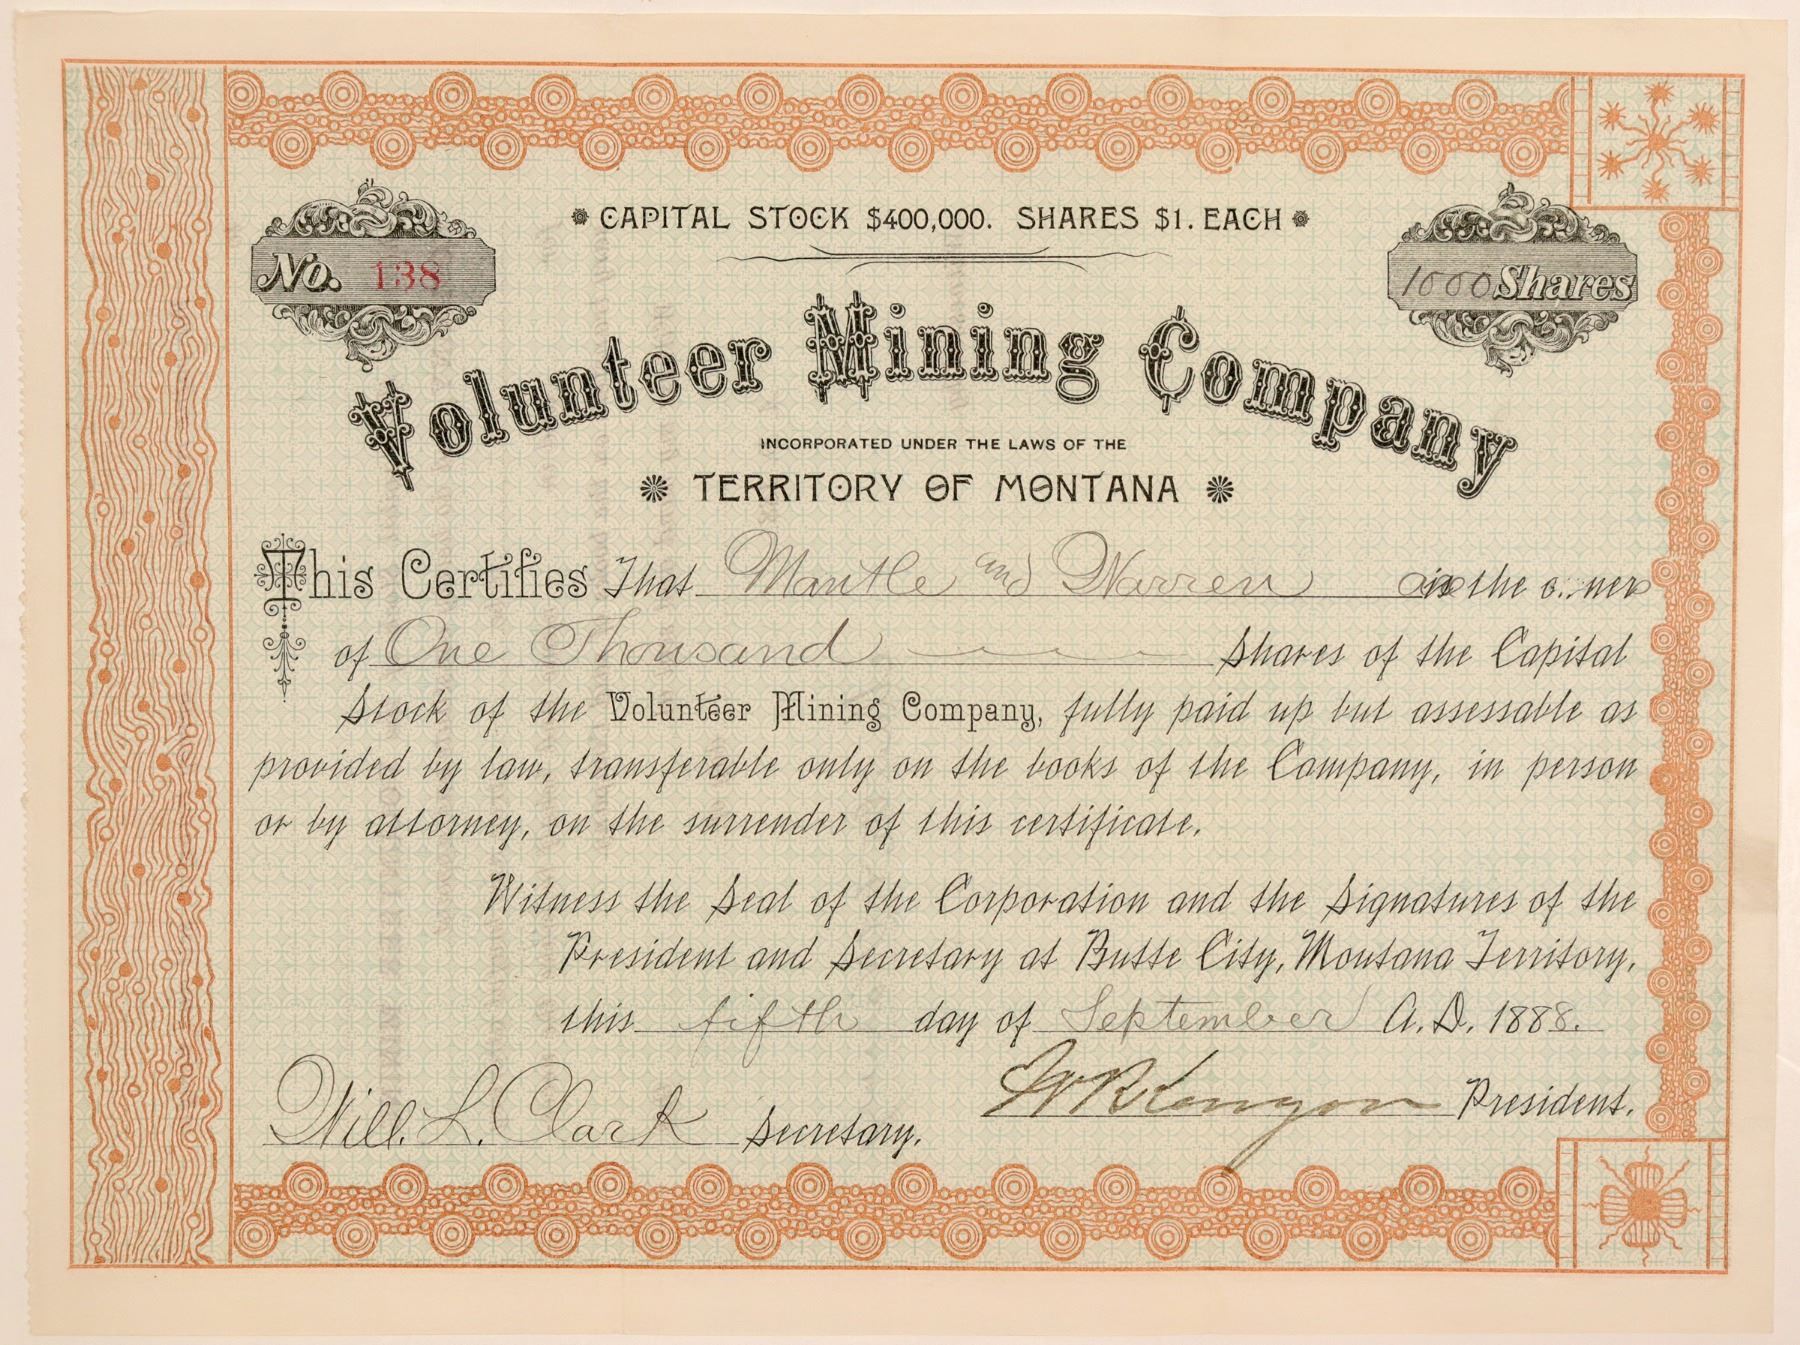 CAPITAL STOCK $400,000. SHARES $1. EACH
No. 138
1000 Shares
Volunteer Mining Company
INCORPORATED UNDER THE LAWS OF THE
TERRITORY OF MONTANA
This Certifies That Mantle and Warren are the owners
of One Thousand Shares of the Capital
Stock of the Volunteer Mining Company, fully paid up but assessable as
provided by law, transferable only on the books of the Company, in person
or by attorney, on the surrender of this certificate.
Witness the Seal of the Corporation and the Signatures of the
President and Secretary at Butte City, Montana Territory,
this fifth day of September A.D. 1888.
Will. L. Clark Secretary.
W R Kenyon President.